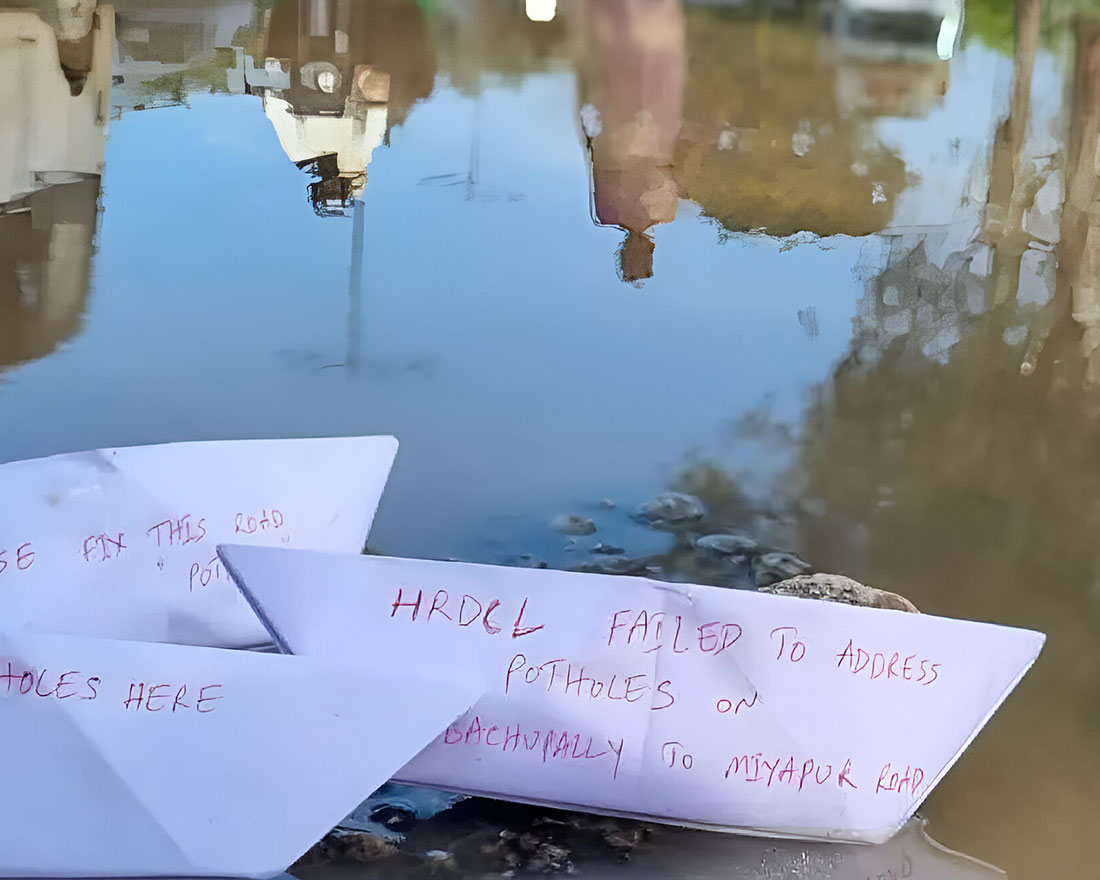 SE FIX THIS ROAD
HRDCL FAILED TO ADDRESS
POTHOLES ON
BACHUPALLY TO MIYAPUR ROAD
HOLES HERE